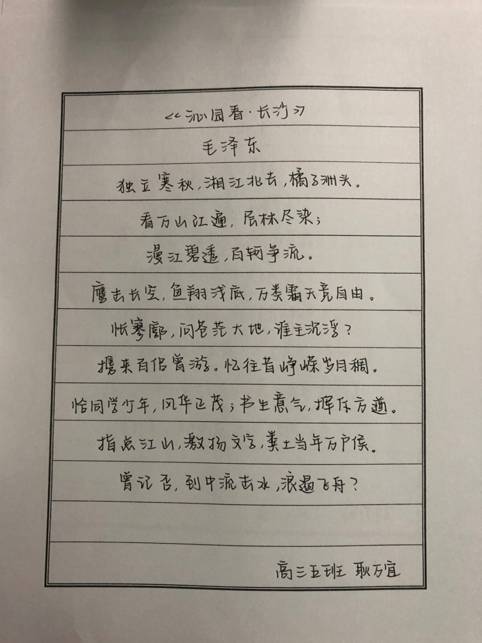 《沁园春·长沙》
毛泽东
独立寒秋,湘江北去,橘子洲头。
看万山红遍,层林尽染;
漫江碧透,百舸争流。
鹰击长空,鱼翔浅底,万类霜天竞自由。
怅寥廓,问苍茫大地,谁主沉浮?
携来百侣曾游。忆往昔峥嵘岁月稠。
恰同学少年,风华正茂;书生意气,挥斥方遒。
指点江山,激扬文字,粪土当年万户侯。
曾记否,到中流击水,浪遏飞舟?
高三五班 耿万宜